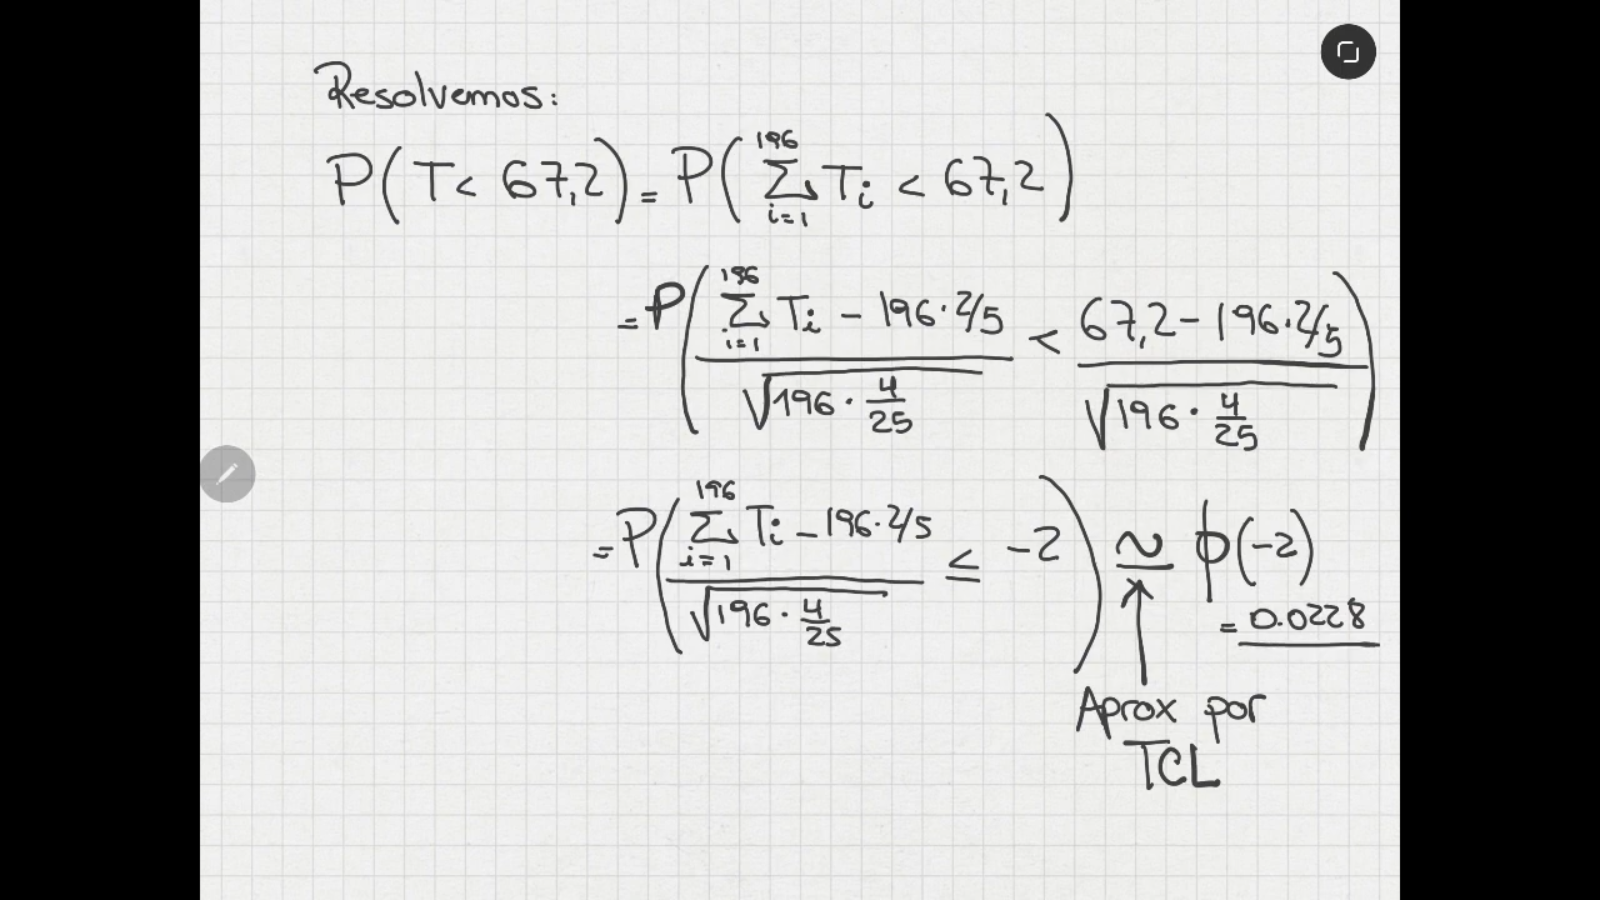 Resolvemos:
P(T < 67,2) = P(∑_{i=1}^{196} Ti < 67,2)
= P((∑_{i=1}^{196} Ti - 196·2/5) / √(196·4/25) < (67,2 - 196·2/5) / √(196·4/25))
= P((∑_{i=1}^{196} Ti - 196·2/5) / √(196·4/25) ≤ -2) ≃ ϕ(-2)
= 0.0228
Aprox por
TCL